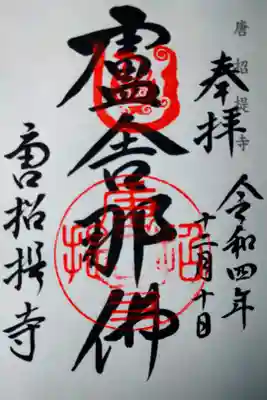 唐招提寺
奉拝
令和四年
十二月十日
盧舎那佛
唐招提寺